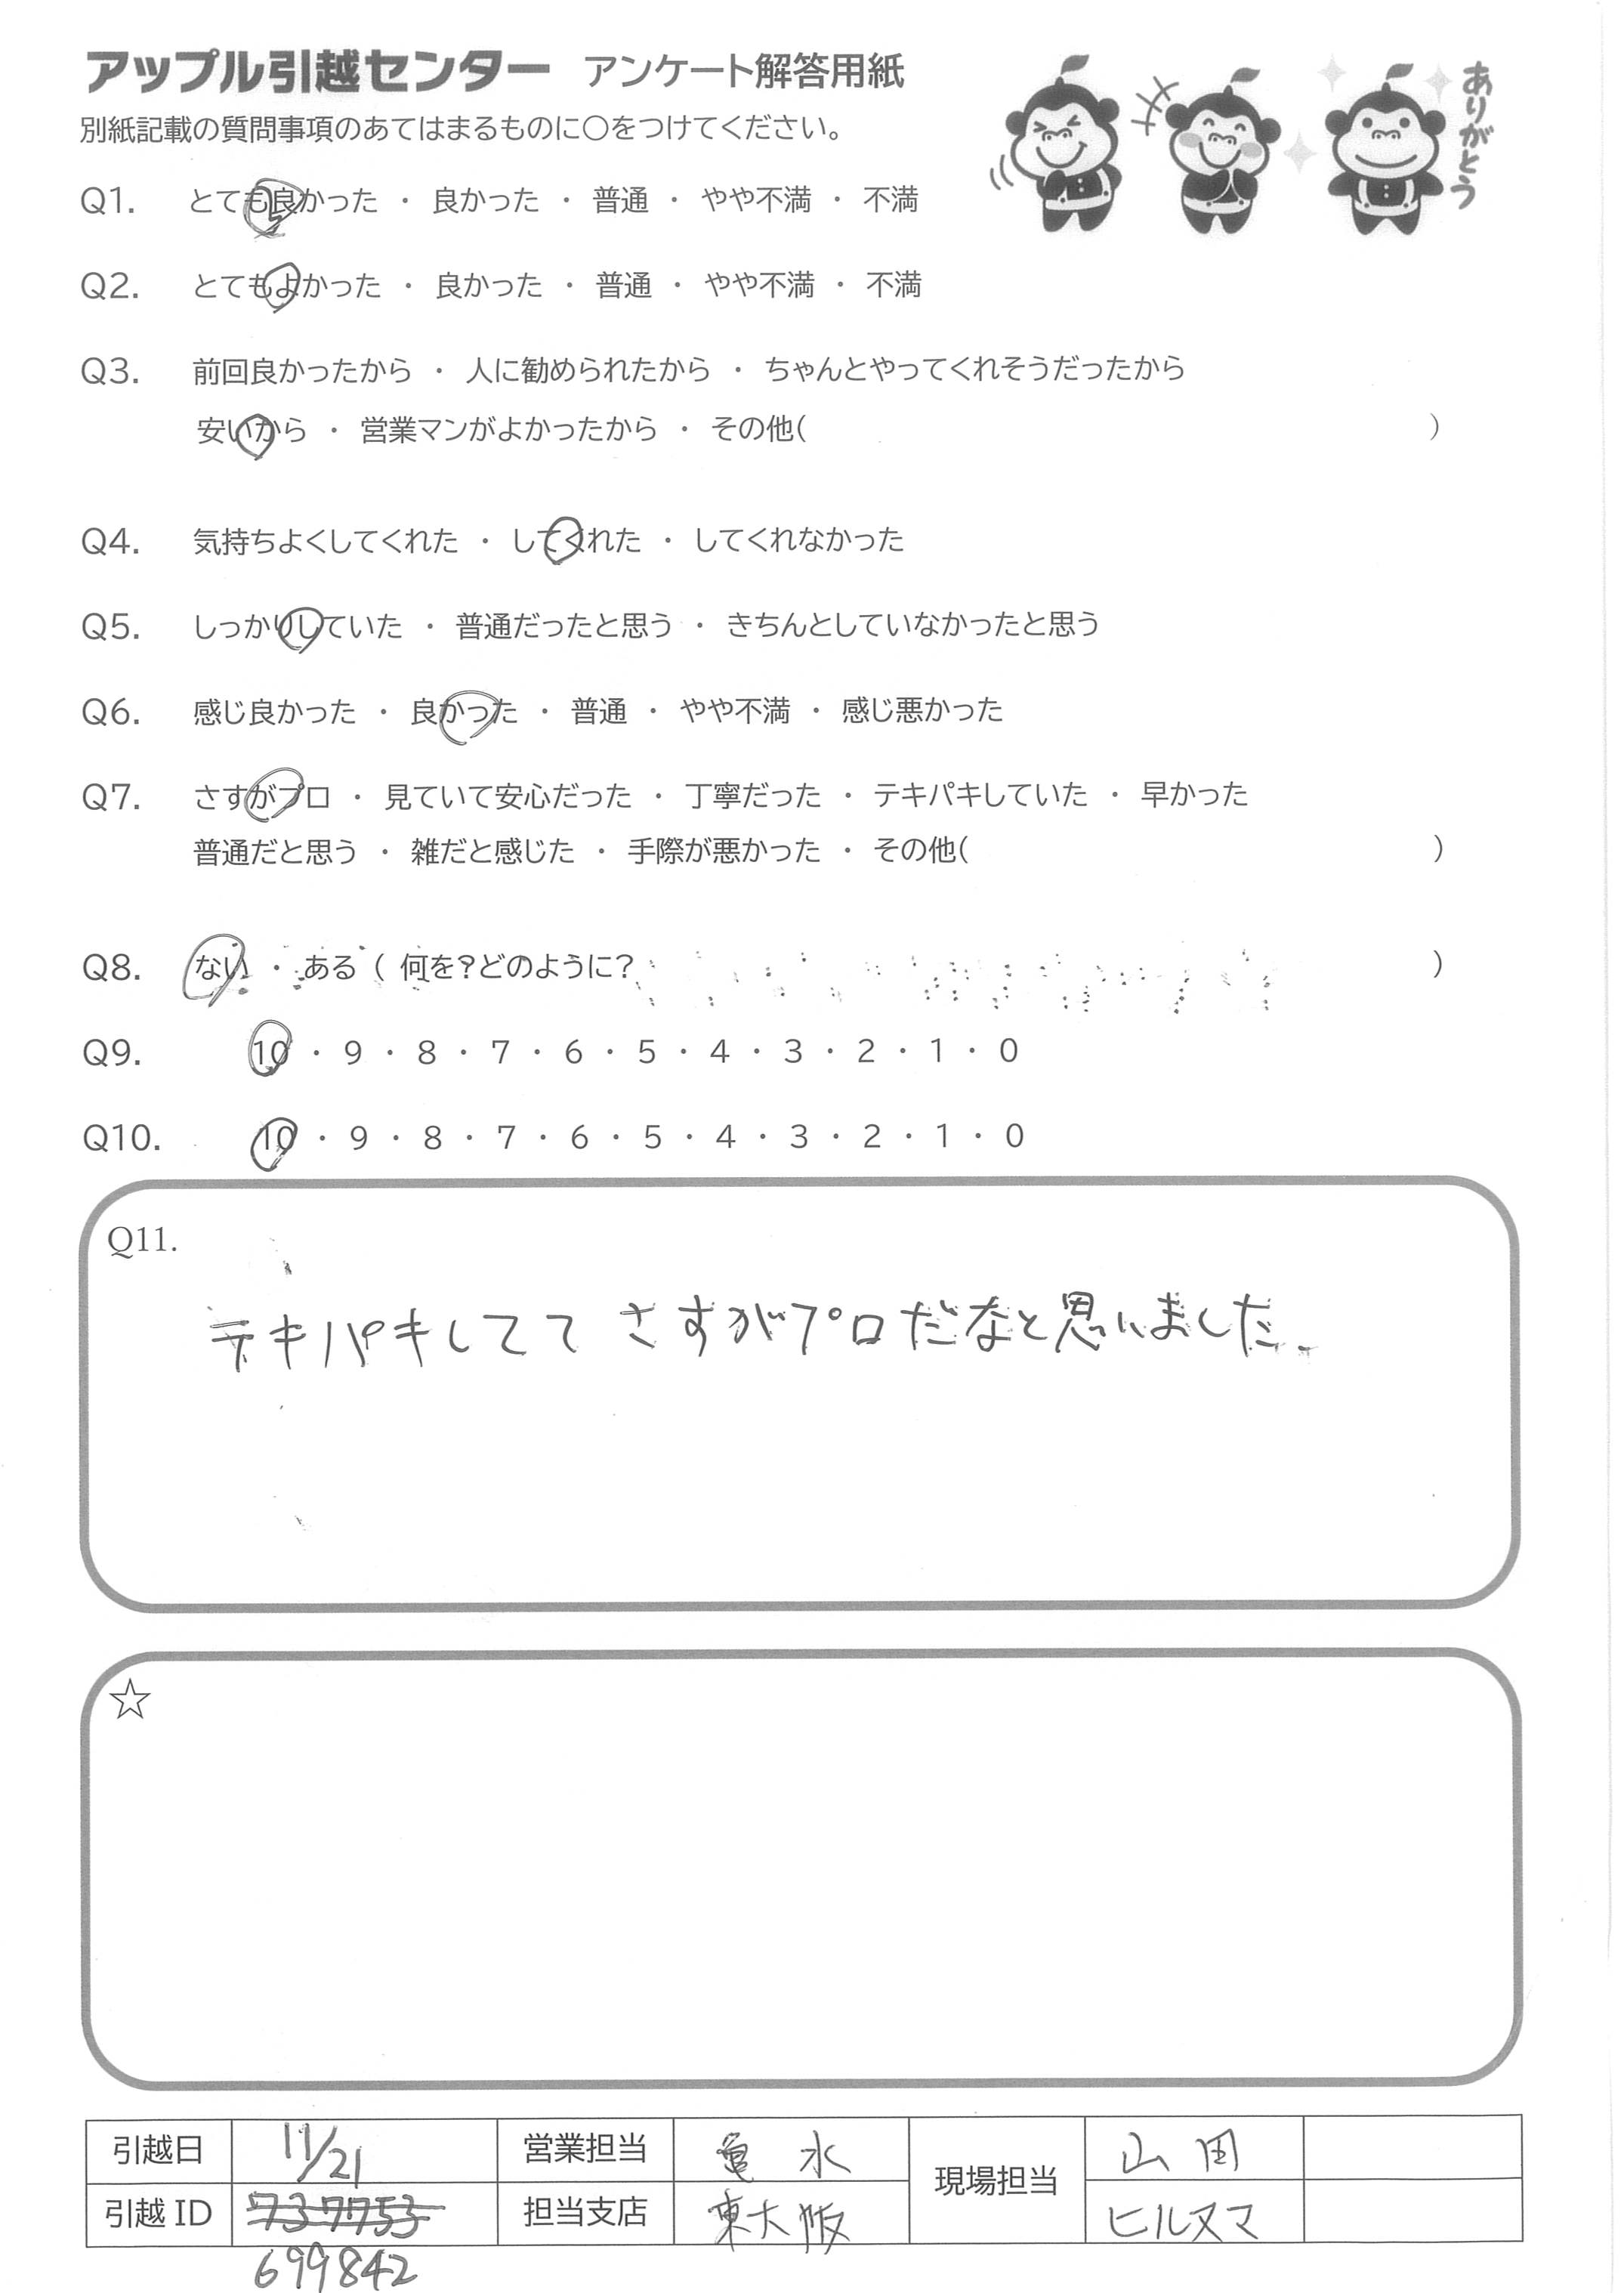 アップル引越センター アンケート解答用紙
ありがとう
別紙記載の質問事項のあてはまるものに○をつけてください。
Q1. とても良かった ・ 良かった ・ 普通 ・ やや不満 ・ 不満
Q2. とてもよかった ・ 良かった ・ 普通 ・ やや不満 ・ 不満
Q3. 前回良かったから ・ 人に勧められたから ・ ちゃんとやってくれそうだったから
安いから ・ 営業マンがよかったから ・ その他( )
Q4. 気持ちよくしてくれた ・ してくれた ・ してくれなかった
Q5. しっかりしていた ・ 普通だったと思う ・ きちんとしていなかったと思う
Q6. 感じ良かった ・ 良かった ・ 普通 ・ やや不満 ・ 感じ悪かった
Q7. さすがプロ ・ 見ていて安心だった ・ 丁寧だった ・ テキパキしていた ・ 早かった
普通だと思う ・ 雑だと感じた ・ 手際が悪かった ・ その他( )
Q8. ない ・ ある ( 何を?どのように? )
Q9. 10 ・ 9 ・ 8 ・ 7 ・ 6 ・ 5 ・ 4 ・ 3 ・ 2 ・ 1 ・ 0
Q10. 10 ・ 9 ・ 8 ・ 7 ・ 6 ・ 5 ・ 4 ・ 3 ・ 2 ・ 1 ・ 0
Q11.
テキパキしてて さすがプロだなと思いました.
☆
引越日 11/21 営業担当 亀水 現場担当 山田
引越 ID 737753 担当支店 東大阪 ヒルヌマ
699842